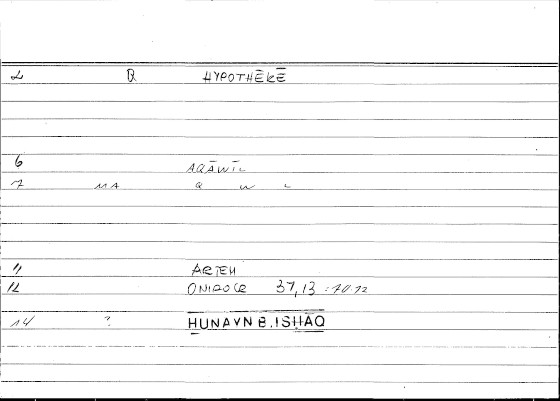 2 R HYPOTHĒKĒ
6 AQĀWĪL
7 MA Q W L
11 ARTEM
12 ONIROCR 37,13 = 70.12
14 ? ḤUNAYN B. ISḤĀQ